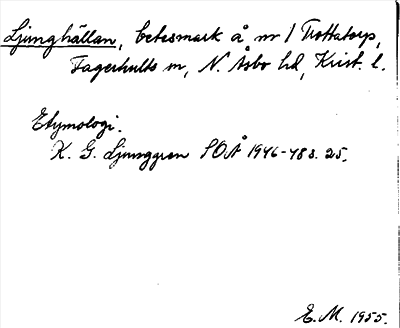 Ljunghällan, betesmark å nr 1 Trottatorp,
Fagerhults sn, N. Åsbo hd, Krist. l.
Etymologi.
K. G. Ljunggren SOÅ 1946-48 s. 25.
E. M. 1955.